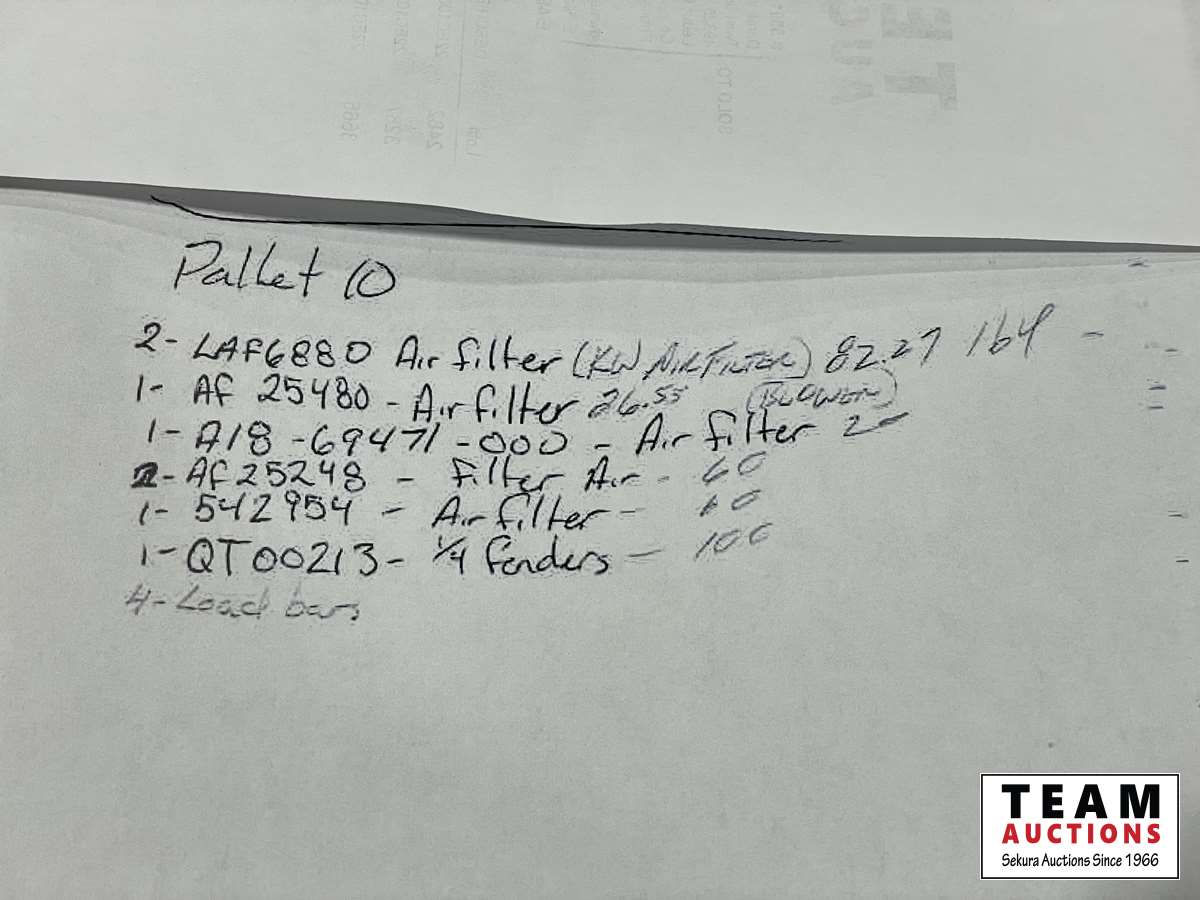 Pallet 10
2- LAF6880 Air filter (KW AIR FILTER) 82.27 164 -
1- AF 25480 - Air filter 26.55 (BLOWER)
1- A18-69471-000 - Air filter
2- AF25248 - filter Air - 60
1- 542954 - Air filter -
1- QT00213- 1/4 fenders - 100
4- Load bars
SOLD TO
Lot
2482
3287
3666
TEAM
AUCTIONS
Sekura Auctions Since 1966